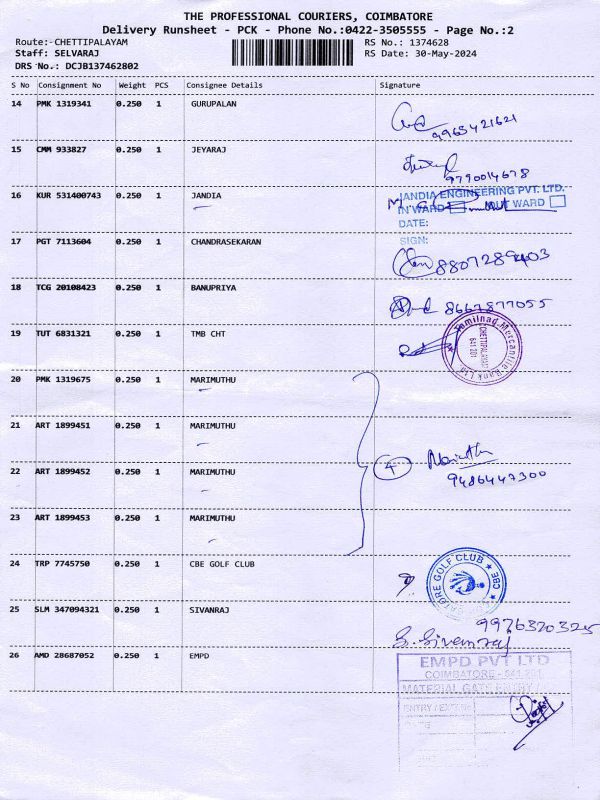 THE PROFESSIONAL COURIERS, COIMBATORE
Delivery Runsheet - PCK - Phone No.:0422-3505555 - Page No.:2
Route:-CHETTIPALAYAM RS No.: 1374628
Staff: SELVARAJ RS Date: 30-May-2024
DRS No.: DCJB137462802
S No Consignment No Weight PCS Consignee Details Signature
14 PMK 1319341 0.250 1 GURUPALAN
9965421621
15 CMM 933827 0.250 1 JEYARAJ
9790014678
16 KUR 531400743 0.250 1 JANDIA JANDIA ENGINEERING PVT. LTD.
IN WARD OUT WARD
DATE:
17 PGT 7113604 0.250 1 CHANDRASEKARAN SIGN:
8807289403
18 TCG 20108423 0.250 1 BANUPRIYA 8667877055
19 TUT 6831321 0.250 1 TMB CHT Tamilnad Mercantile Bank Ltd
CHETTIPALAYAM
641 201
20 PMK 1319675 0.250 1 MARIMUTHU
21 ART 1899451 0.250 1 MARIMUTHU
22 ART 1899452 0.250 1 MARIMUTHU 4 Marimuthu
9486447300
23 ART 1899453 0.250 1 MARIMUTHU
24 TRP 7745750 0.250 1 CBE GOLF CLUB COIMBATORE GOLF CLUB CBE
25 SLM 347094321 0.250 1 SIVANRAJ 9976320325
S. Sivanraj
26 AMD 28687052 0.250 1 EMPD EMPD PVT LTD
COIMBATORE - 641 201
MATERIAL GATE ENTRY
ENTRY / EXT No
DATE